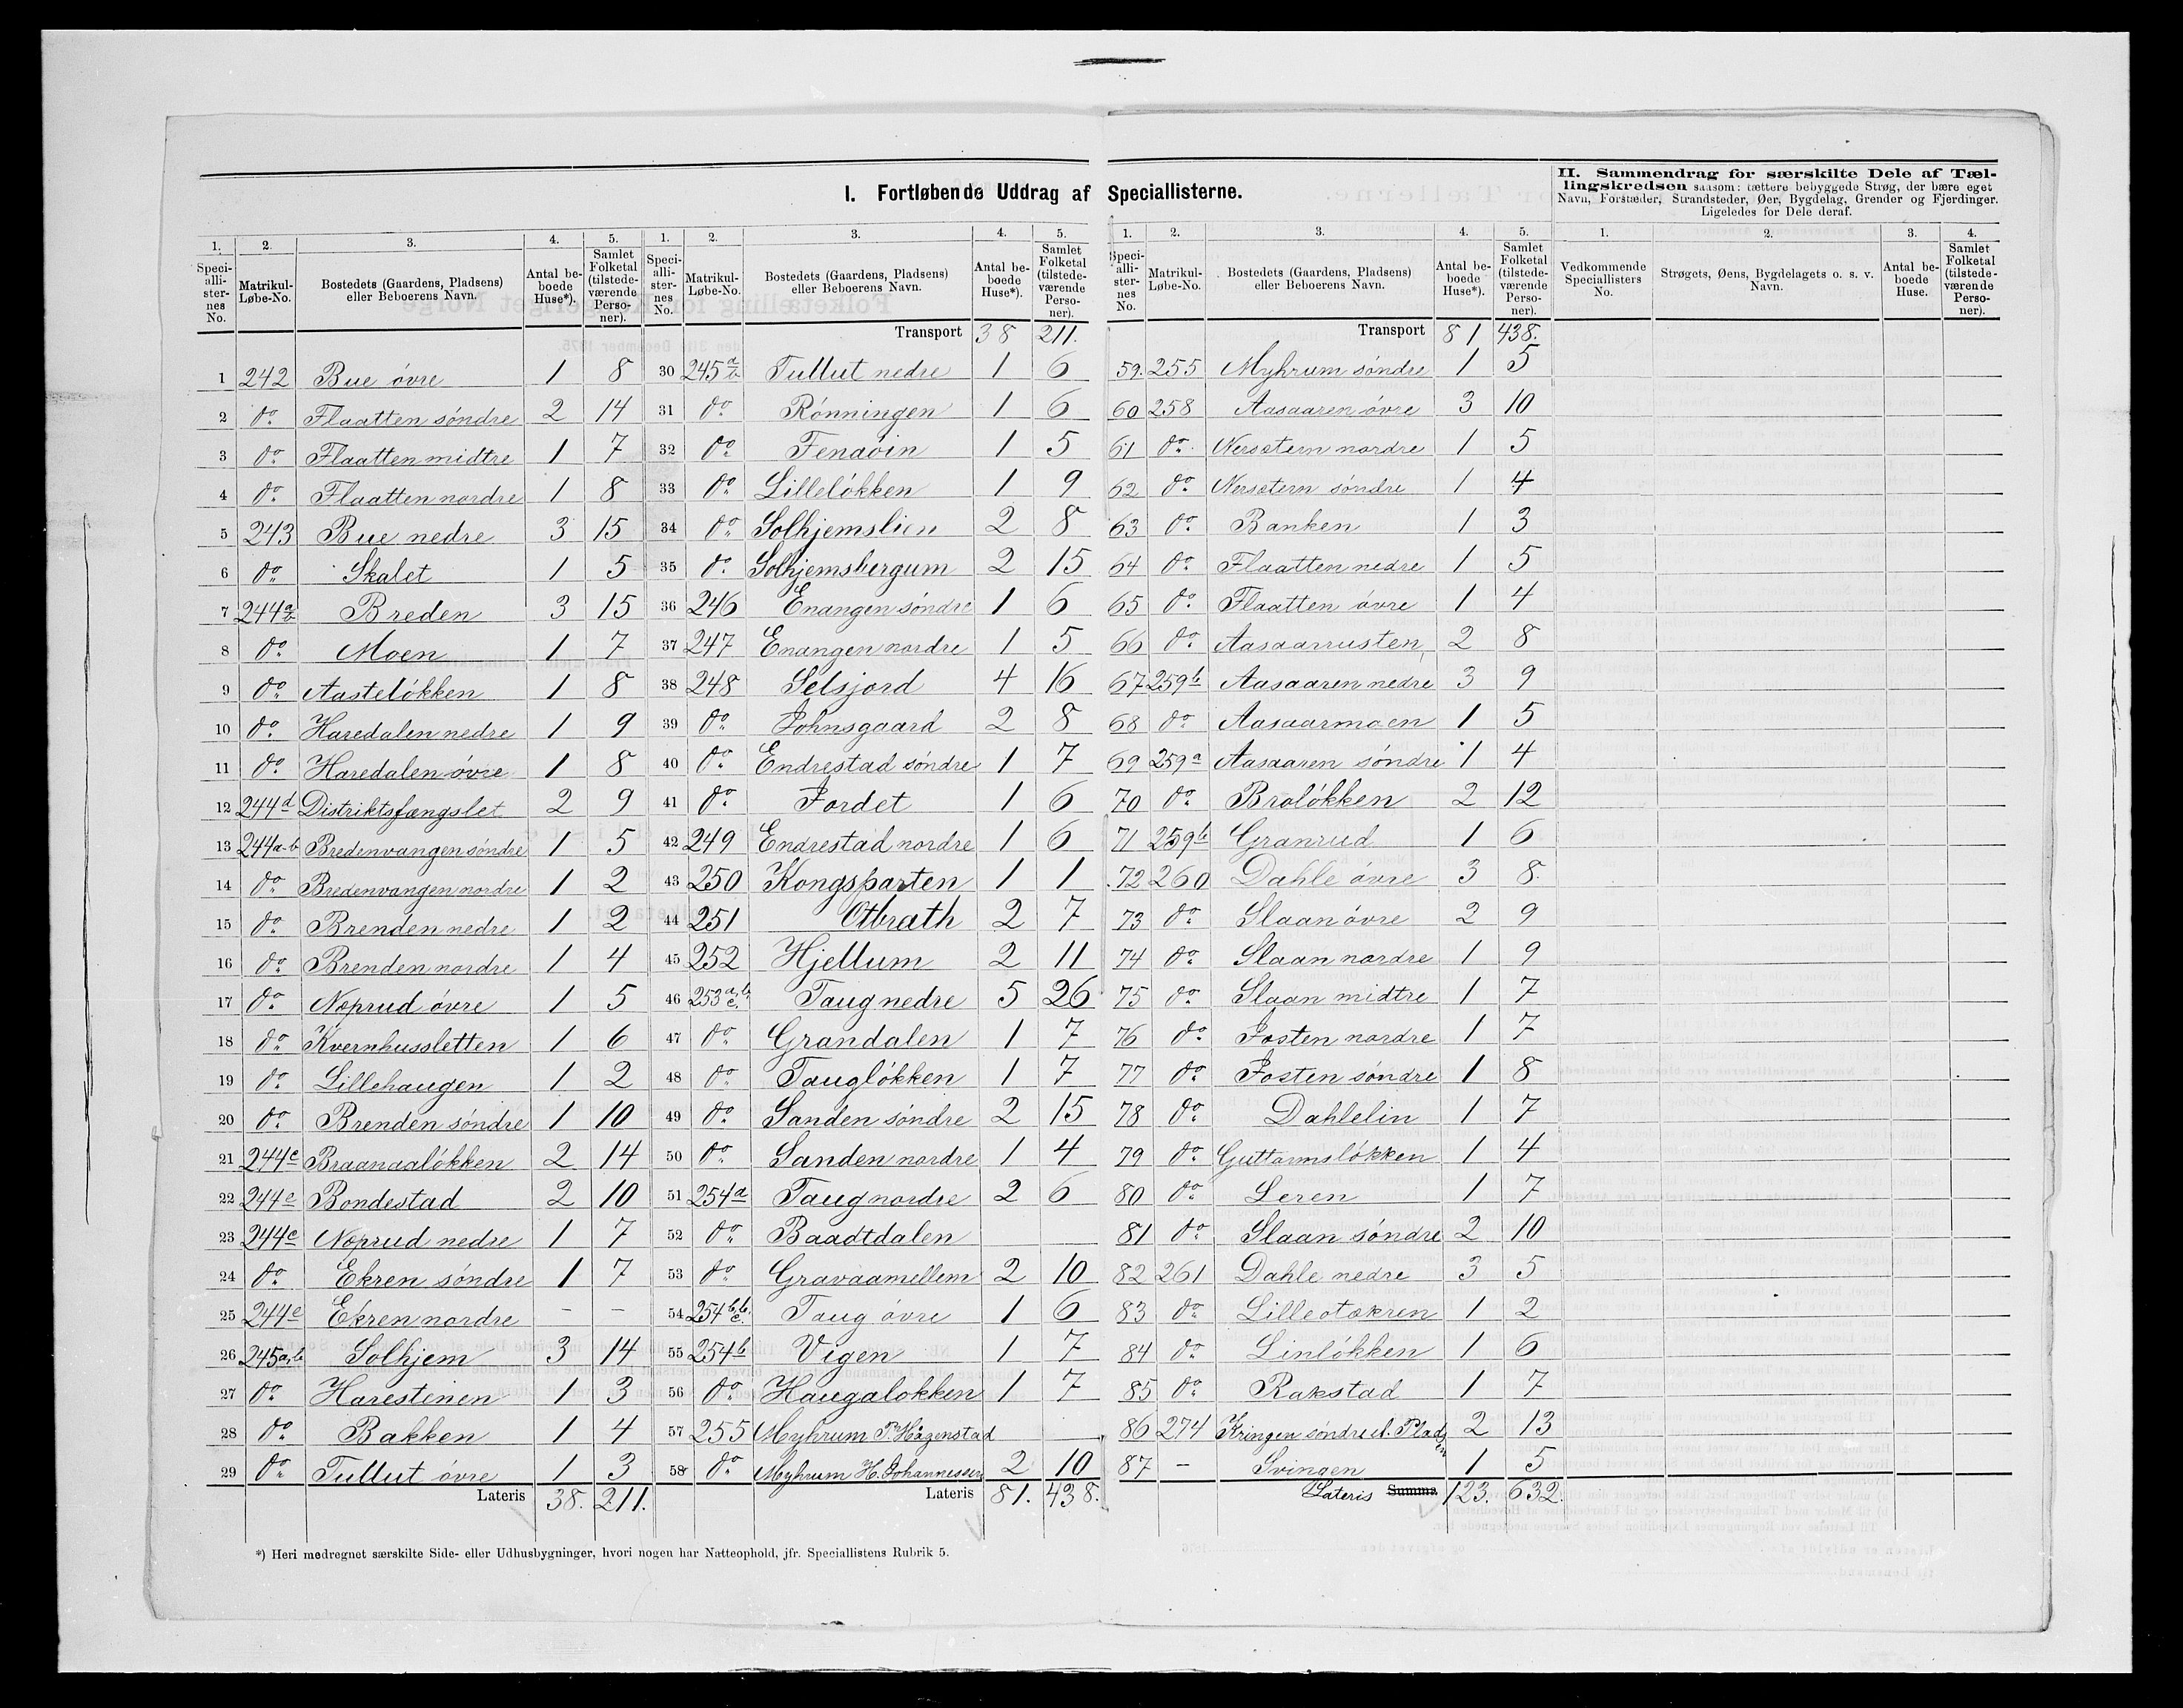 I. Fortløbende Uddrag af Speciallisterne.
II. Sammendrag for særskilte Dele af Tællingskredsen saasom: tættere bebyggede Strøg, der bære eget
Navn, Forstæder, Strandsteder, Øer, Bygdelag, Grender og Fjerdinger.
Ligeledes for Dele deraf.
1. 2. 3. 4. 5.
Speciallisternes No. Matrikul-Løbe-No. Bostedets (Gaardens, Pladsens) eller Beboerens Navn. Antal beboede Huse*). Samlet Folketal (tilstedeværende Personer).
1 242 Bue övre 1 8
2 do Flaatten söndre 2 14
3 do Flaatten midtre 1 7
4 do Flaatten nordre 1 8
5 243 Bue nedre 3 15
6 do Skalet 1 5
7 244 a b Breden 3 15
8 do Moen 1 7
9 do Aastelökken 1 8
10 do Haredalen nedre 1 9
11 do Haredalen övre 1 8
12 244d Distriktsfængslet 2 9
13 244a-b Bredenvangen söndre 1 5
14 do Bredenvangen nordre 1 2
15 do Brenden nedre 1 2
16 do Brenden nordre 1 4
17 do Noprud övre 1 5
18 do Kvernhussletten 1 6
19 do Lillehaugen 1 2
20 do Brenden söndre 1 10
21 244c Braanaalökken 2 14
22 244c Bondestad 2 10
23 244e Noprud nedre 1 7
24 do Ekren söndre 1 7
25 244e Ekren nordre - -
26 245a,b Solhjem 3 14
27 do Harestinen 1 3
28 do Bakken 1 4
29 do Tullut övre 1 3
Lateris 38. 211.
1. 2. 3. 4. 5.
Speciallisternes No. Matrikul-Løbe-No. Bostedets (Gaardens, Pladsens) eller Beboerens Navn. Antal beboede Huse*). Samlet Folketal (tilstedeværende Personer).
Transport 38 211.
30 245 a b Tullut nedre 1 6
31 do Rönningen 1 6
32 do Fenaöin 1 5
33 do Lillelökken 1 9
34 do Solhjemslien 2 8
35 do Solhjemsbergum 2 15
36 246 Enangen söndre 1 6
37 247 Enangen nordre 1 5
38 248 Selsjord 4 16
39 do Johnsgaard 2 8
40 do Endrestad söndre 1 7
41 do Jordet 1 6
42 249 Endrestad nordre 1 6
43 250 Kongsparten 1 1
44 251 Otbrath 2 7
45 252 Hjellum 2 11
46 253 a,b c. Taug nedre 5 26
47 do Grandalen 1 7
48 do Tauglökken 1 7
49 do Sanden söndre 2 15
50 do Sanden nordre 1 4
51 254a Taug nordre 2 6
52 do Baadtdalen
53 do Gravaamellem 2 10
54 254 b c. Taug övre 1 6
55 254b Vigen 1 7
56 do Haugalokken 1 7
57 255 Myhrum P. Hagenstad
58 do Myhrum H. Johannessen 2 10
Lateris 81. 438.
1. 2. 3. 4. 5.
Speciallisternes No. Matrikul-Løbe-No. Bostedets (Gaardens, Pladsens) eller Beboerens Navn. Antal beboede Huse*). Samlet Folketal (tilstedeværende Personer).
Transport 81 438.
59. 255 Myhrum söndre 1 5
60 258 Aasaaren övre 3 10
61 do Nersetern nordre 1 5
62 do Nersetern söndre 1 4
63 do Banken 1 3
64 do Flaatten nedre 1 5
65 do Flaatten övre 1 4
66 do Aasaarrusten 2 8
67 259b Aasaaren nedre 3 9
68 do Aasaarmoen 1 5
69 259a Aasaaren söndre 1 4
70 do Brolökken 2 12
71 259b Granrud 1 6
72 260 Dahle övre 3 8
73 do Slaan övre 2 9
74 do Slaan nordre 1 9
75 do Slaan midtre 1 7
76 do Josten nordre 1 7
77 do Josten söndre 1 8
78 do Dahlelin 1 7
79 do Guttormslökken 1 4
80 do Leren 1 7
81 do Slaan söndre 2 10
82 261 Dahle nedre 3 5
83 do Lilleotekren 1 2
84 do Linlökken 1 6
85 do Rakstad 1 7
86 274 Kringen söndre u. Plads 2 13
87 - Svingen 1 5
Lateris Summa 123. 632.
1. 2. 3. 4.
Vedkommende Speciallisters No. Strøgets, Øens, Bygdelagets o. s. v. Navn. Antal beboede Huse. Samlet Folketal (tilstedeværende Personer).
*) Heri medregnet særskilte Side- eller Udhusbygninger, hvori nogen har Natteophold, jfr. Speciallistens Rubrik 5.